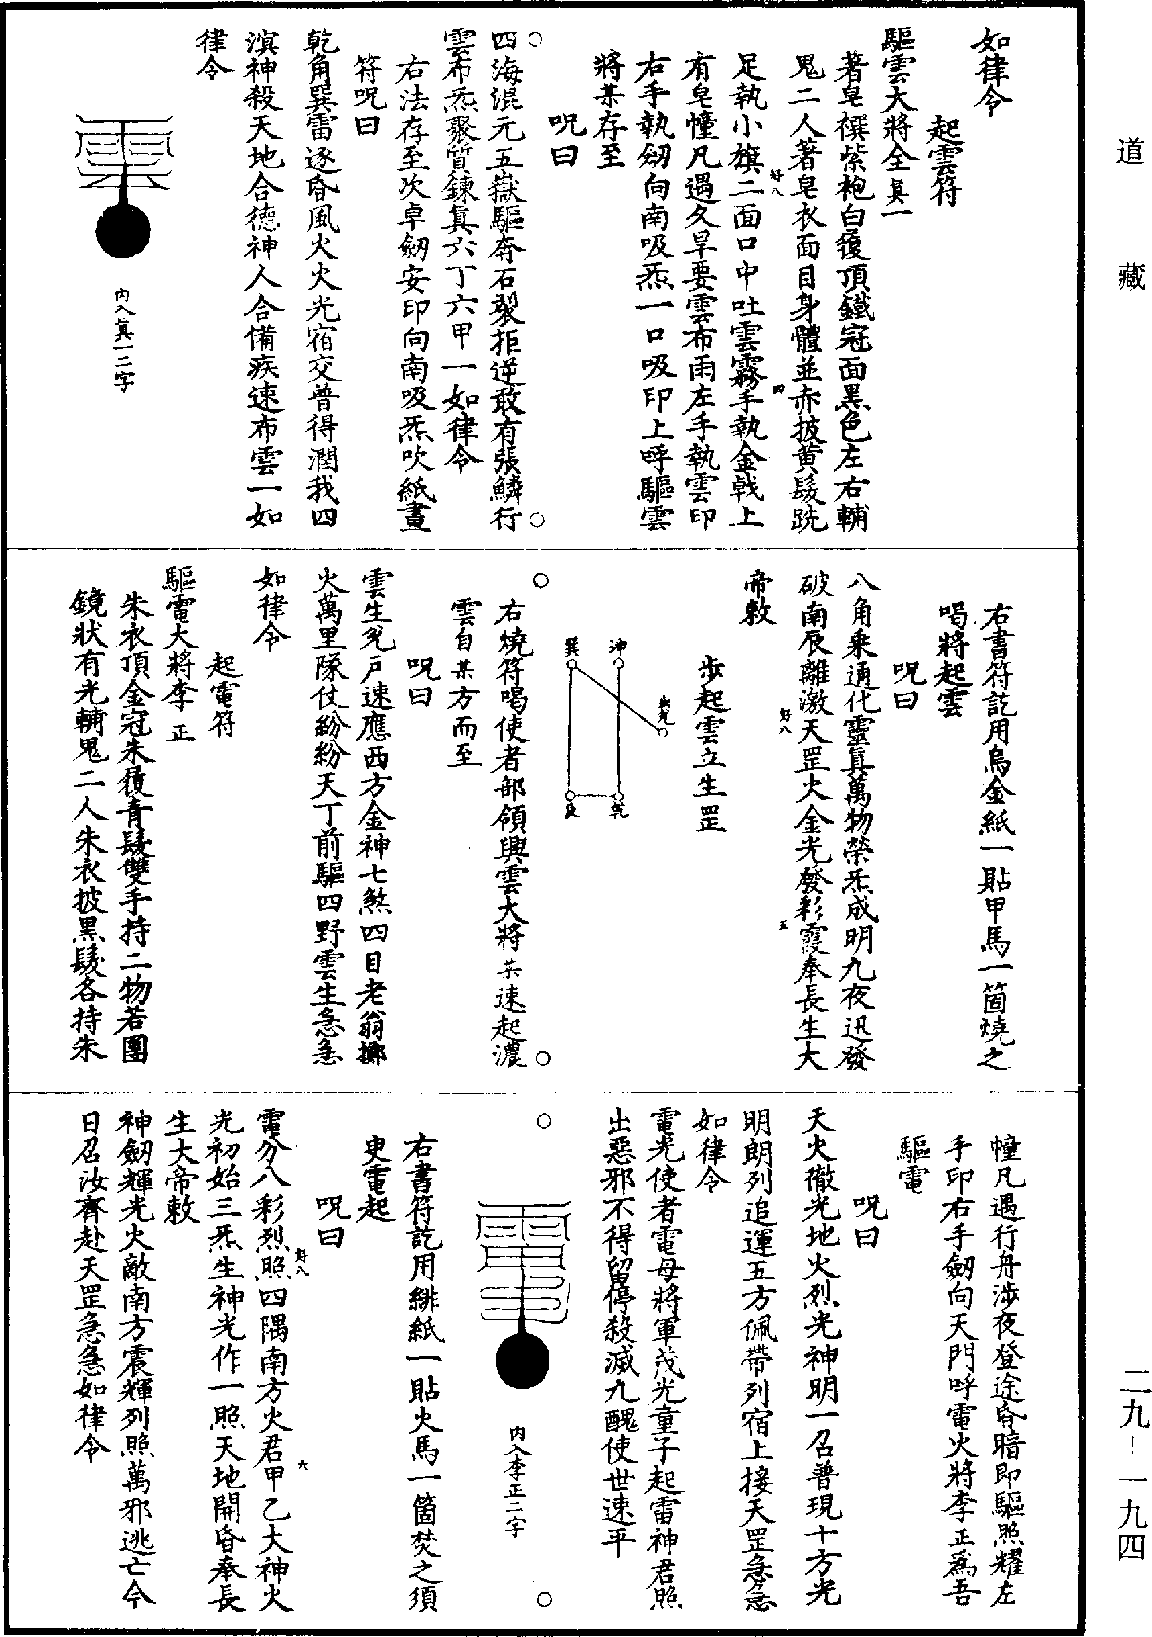 道藏
二九-一九四
如律令
起雲符
驅雲大將全真一
著皂襈紫袍白履頂鐵冠面黑色左右輔
鬼二人著皂衣面目身體並赤披黄髮跣
好八
四
足執小旗二面口中吐雲霧手執金戟上
有皂幢凡遇久旱要雲布雨左手執雲印
右手執劒向南吸炁一口吸印上呼驅雲
將某存至
呪曰
四海混元五嶽驅奔石裂拒逆敢有張鱗行
雲布炁聚質鍊真六丁六甲一如律令
右法存至次卓劒安印向南吸炁吹紙畫
符呪曰
乾角巽雷逐昏風火火光宿交普得潤我四
溟神殺天地合德神人合備疾速布雲一如
律令
内入真一二字
右書符訖用烏金紙一貼甲馬一箇燒之
喝將起雲
呪曰
八角乘通化靈真萬物榮炁成明九夜迅發
好八
五
破南辰離激天罡火金光發彩霞奉長生大
帝敕
步起雲立生罡
坤
巽
乾
艮
右燒符喝使者部領興雲大將某速起濃
雲自某方而至
呪曰
雲生兊戸速應西方金神七煞四目老翁擲
火萬里隊仗紛紛天丁前驅四野雲生急急
如律令
起電符
驅電大將李正
朱衣頂金冠朱履青髮雙手持二物若團
鏡狀有光輔鬼二人朱衣披黑髮各持朱
幢凡遇行舟涉夜登途昏暗即驅照耀左
手印右手劒向天門呼電火將李正為吾
驅電
呪曰
天火徹光地火烈光神明一召普現十方光
明朗列追運五方佩帶列宿上接天罡急急
如律令
電光使者電母將軍茂光童子起雷神君照
出惡邪不得留停殺滅九醜使世速平
内入李正二字
右書符訖用緋紙一貼火馬一箇焚之須
吏電起
呪曰
電分八彩烈照四隅南方火君甲乙大神火
好八
六
光初始三炁生神光作一照天地開昏奉長
生大帝敕
神劒輝光火敵南方震輝列照萬邪逃亡今
日召汝齊赴天罡急急如律令